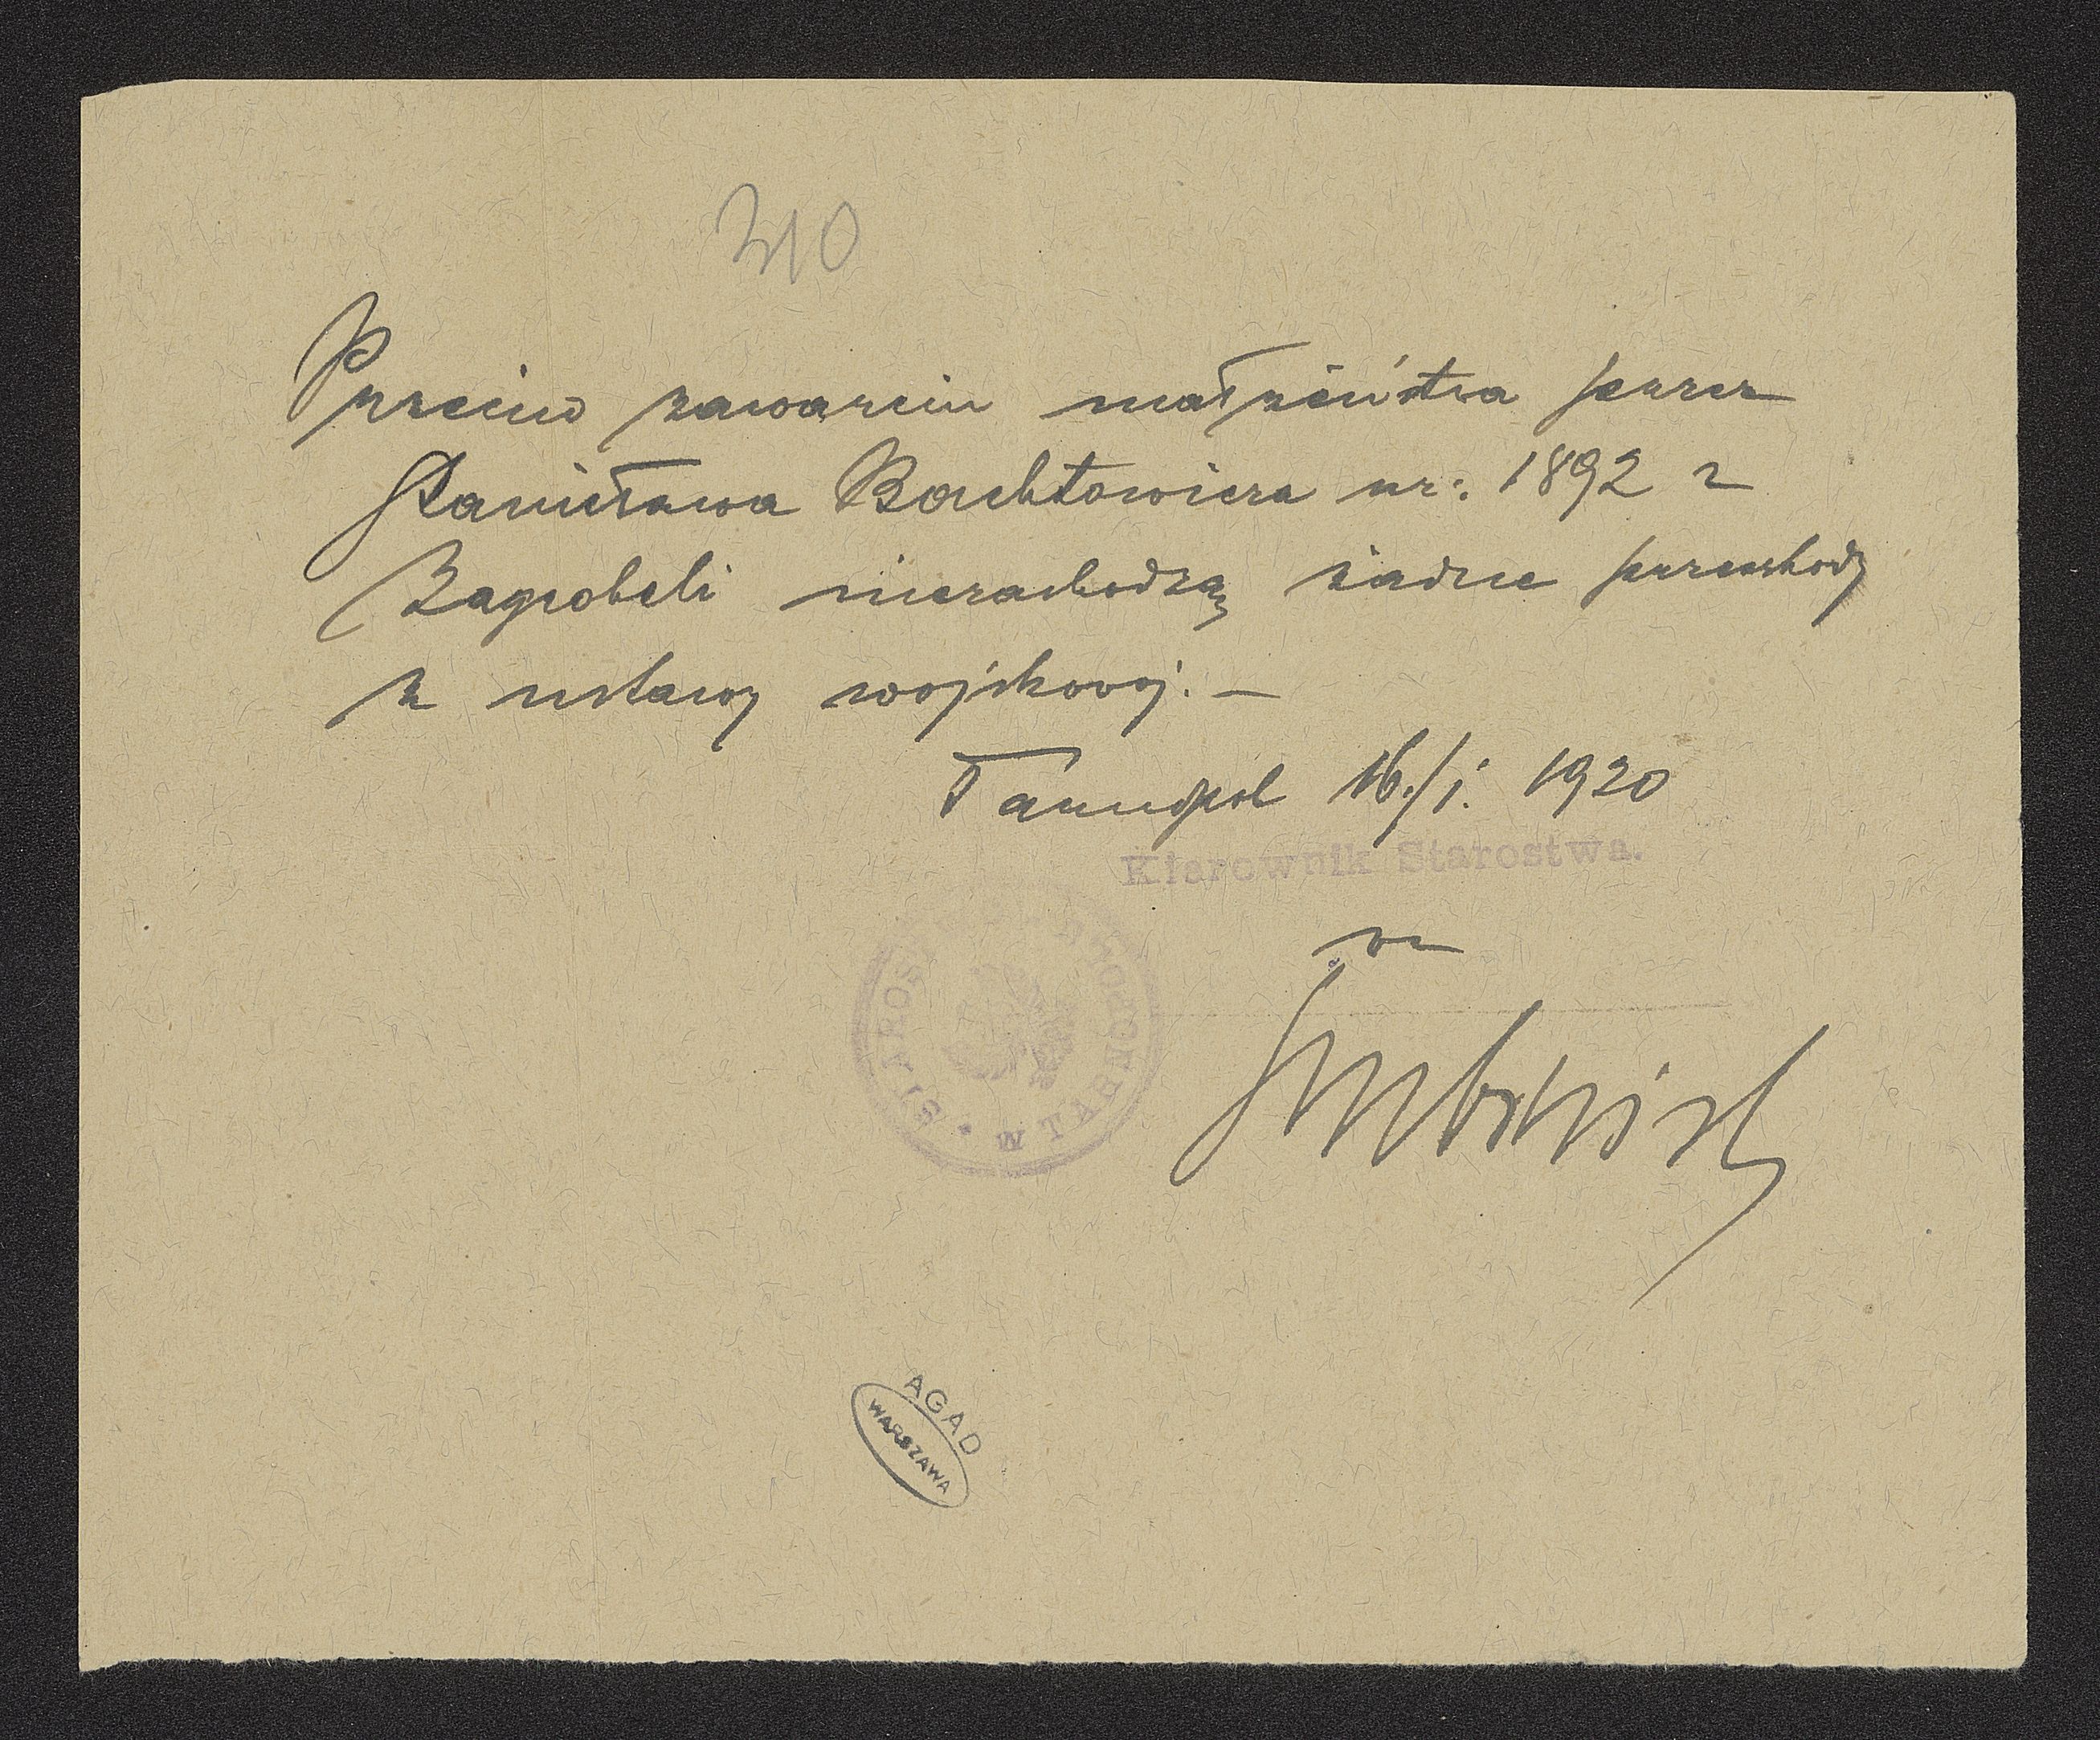 310
Przeciw zawarciu małżeństwa przez
Stanisława Bachtowicza ur: 1892 z
Zagrobeli niezachodzą żadne przeszkody
z ustawy wojskowej. —
Tarnopol 16./1. 1920
Kierownik Starostwa.
STAROS W TARNOPOLU
AGAD
WARSZAWA